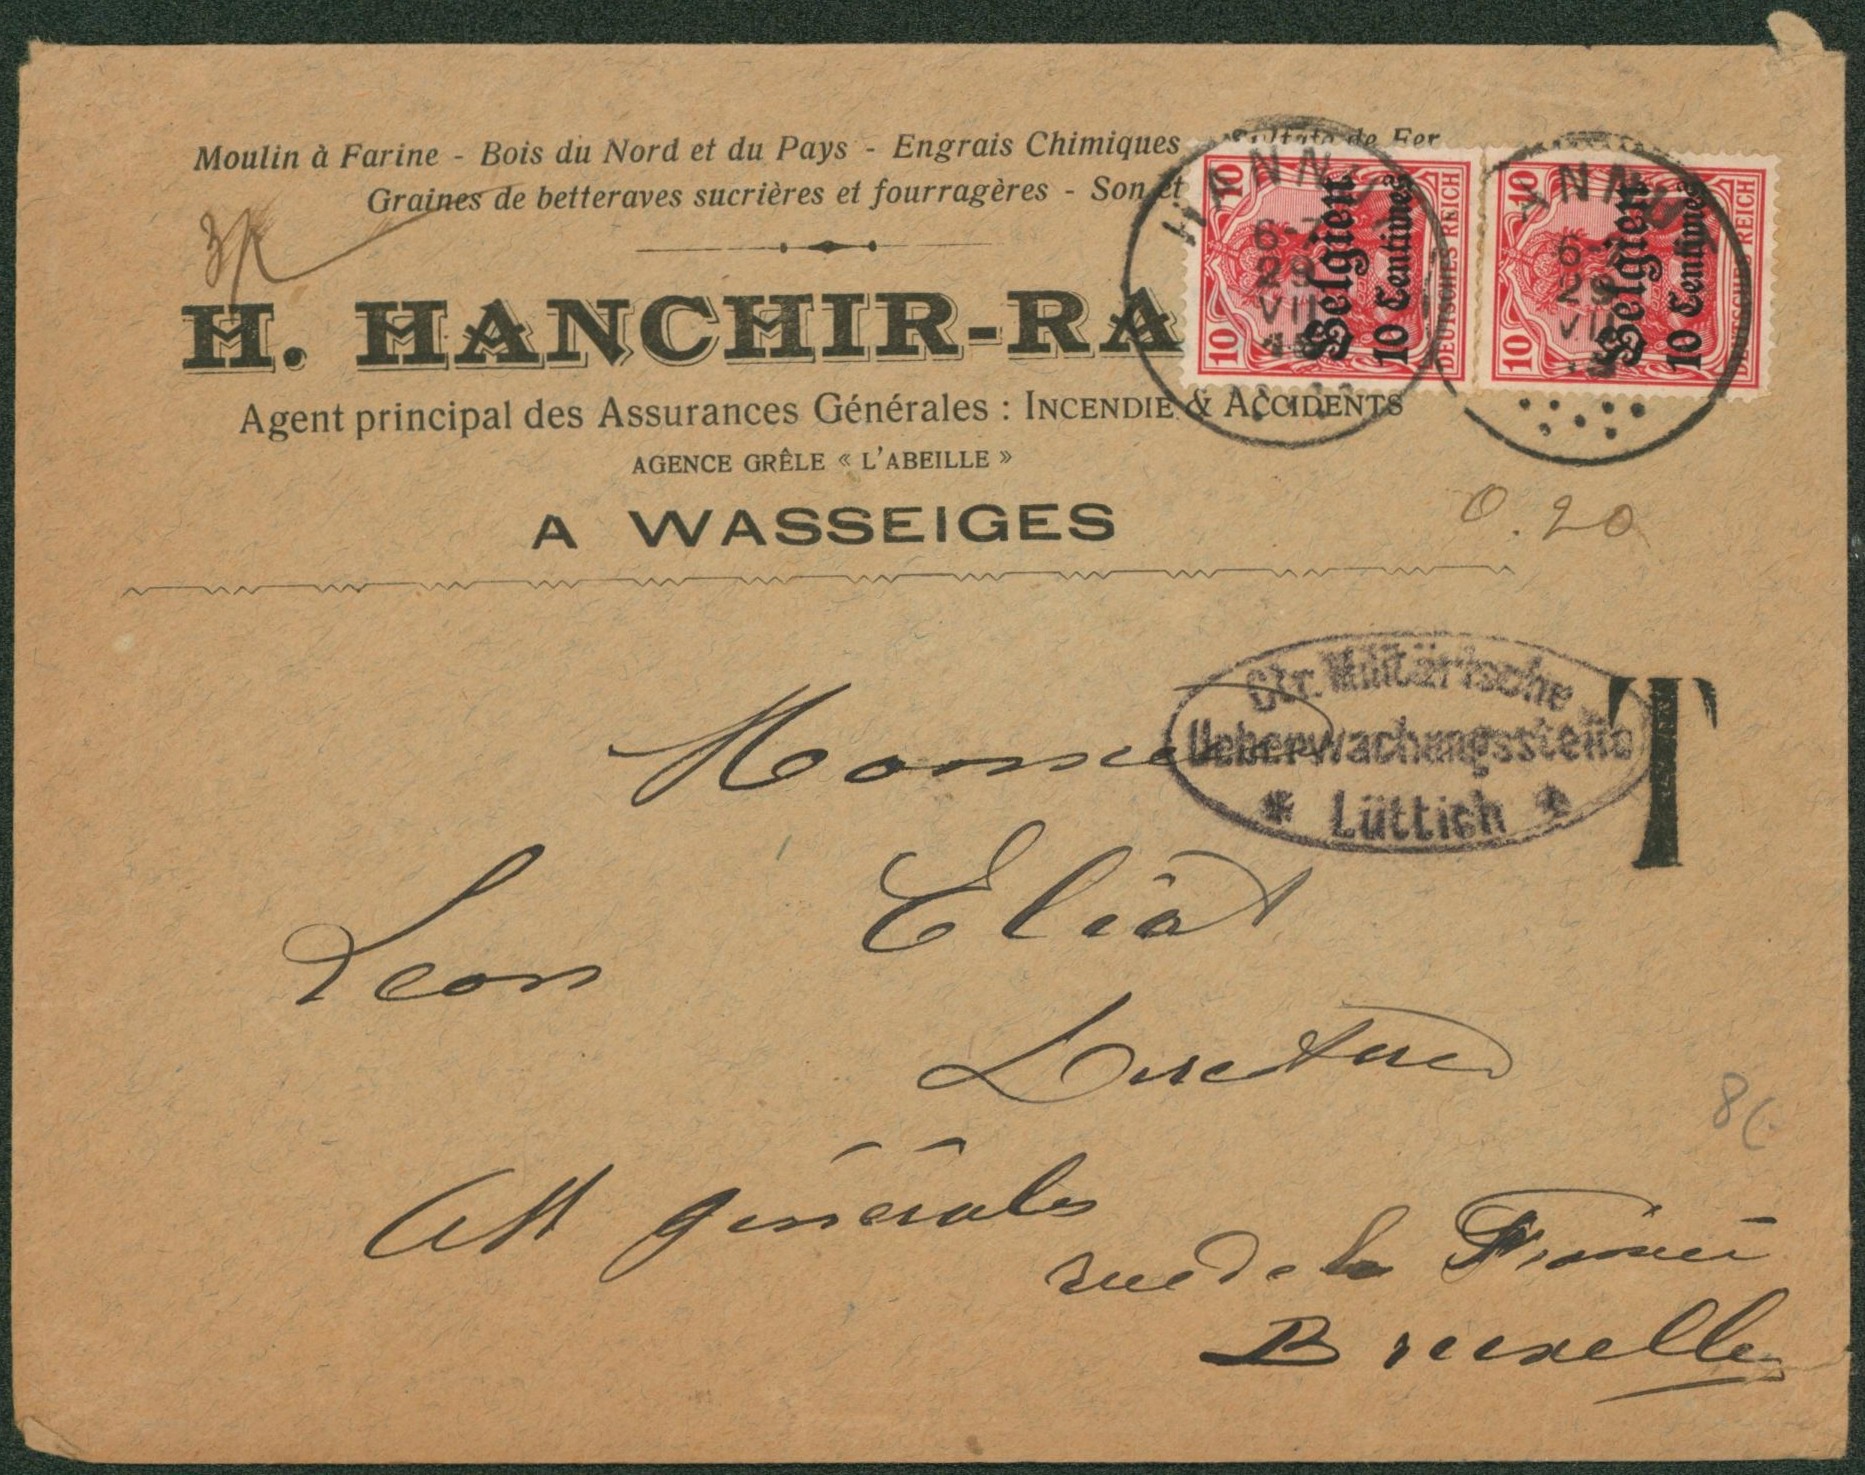 Moulin à Farine - Bois du Nord et du Pays - Engrais Chimiques - Sulfate de Fer
Graines de betteraves sucrières et fourragères - Son et
H. HANCHIR-RA
Agent principal des Assurances Générales : INCENDIE & ACCIDENTS
AGENCE GRÊLE « L'ABEILLE »
A WASSEIGES
10 10
Belgien
10 Centimes
DEUTSCHES REICH
10 10
Belgien
10 Centimes
DEUTSCHES REICH
HANNU
6-7
29
VII
ANNU
6-
29
VII
0.20
Gtr. Militärische
Ueberwachungsstelle
* Lüttich *
T
Monsieur
Leon Eliat
Directeur
Ass générales
rue de la
Bruxelles